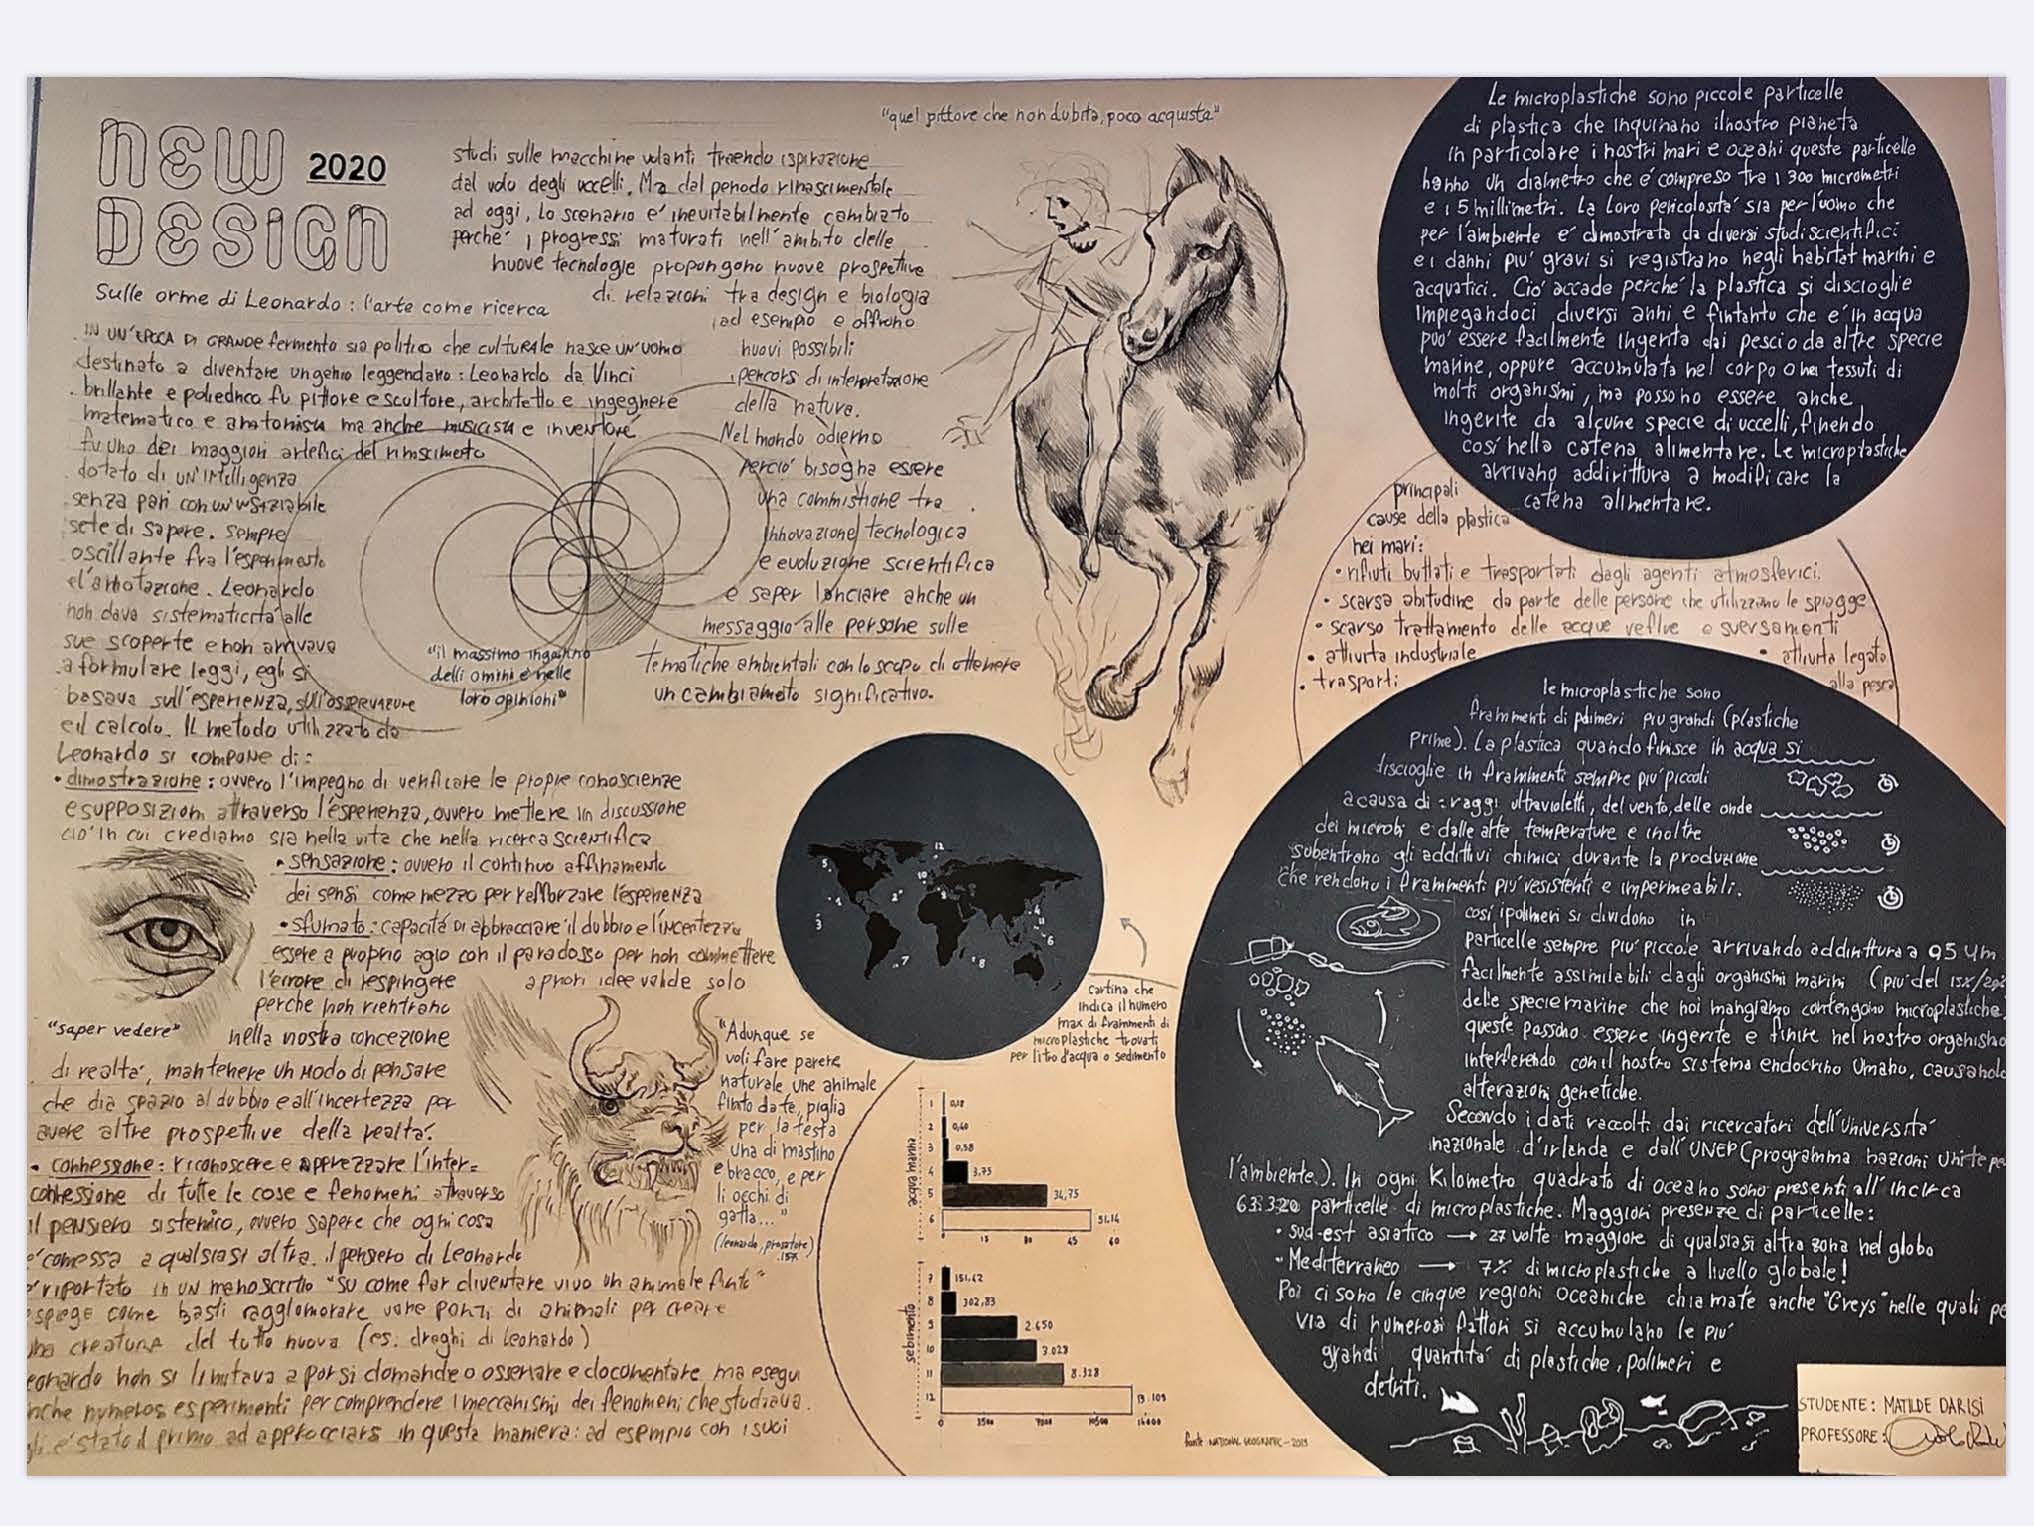 NEW
2020
DESIGN
Sulle orme di Leonardo: l'arte come ricerca
IN UN'EPOCA DI GRANDE fermento sia politico che culturale nasce UN'UOMO
destinato a diventare un genio leggendario: Leonardo da Vinci
brillante e poliedrico fu pittore e scultore, architetto e ingegnere
matematico e anatomista ma anche musicista e inventore
fu uno dei maggiori artefici del rinascimento
dotato di UN'intelligenza
senza pari con un'insaziabile
sete di sapere. sempre
oscillante fra l'esperimento
e l'annotazione. Leonardo
non dava sistematicità alle
sue scoperte e non arrivava
a formulare leggi, egli si
basava sull'esperienza, sull'osservazione
e il calcolo. Il metodo utilizzato da
Leonardo si compone di:
• dimostrazione: ovvero l'impegno di verificare le proprie conoscienze
e supposizioni attraverso l'esperienza, ovvero mettere in discussione
ciò in cui crediamo sia nella vita che nella ricerca scientifica
• sensazione: ovvero il continuo affinamento
dei sensi come mezzo per rafforzare l'esperienza
• sfumato: capacità di abbracciare il dubbio e l'incertezza
essere a proprio agio con il paradosso per non commettere
l'errore di respingere a priori idee valide solo
perche non rientrano
"saper vedere"
nella nostra concezione
di realtà, mantenere un modo di pensare
che dia spazio al dubbio e all'incertezza per
avere altre prospettive della realtà.
• connessone: riconoscere e apprezzare l'inter=
connessione di tutte le cose e fenomeni attraverso
il pensiero sistemico, ovvero sapere che ogni cosa
e' connessa a qualsiasi altra. il pensiero di Leonardo
e' riportato in un manoscritto "su come far diventare vivo un animale finto"
spiega come basti ragglomorare varie parti di animali per creare
una creatura del tutto nuova (es. draghi di Leonardo)
eonardo non si limitava a porsi domande o osservare e documentare ma esegui
nche numerosi esperimenti per comprendere i meccanismi dei fenomeni che studiava.
gli e' stato il primo ad approcciarsi in questa maniera: ad esempio con i suoi
studi sulle macchine volanti traendo ispirazione
dal volo degli uccelli. Ma dal periodo rinascimentale
ad oggi, lo scenario e' inevitabilmente cambiato
perche' i progressi maturati nell'ambito delle
nuove tecnologie propongono nuove prospettive
di relazioni tra design e biologia
ad esempio e offrono
nuovi possibili
percorsi di interpretazione
della natura.
Nel mondo odierno
percio' bisogna essere
una commistione tra
innovazione tecnologica
e evoluzione scientifica
e saper lanciare anche un
messaggio alle persone sulle
tematiche ambientali con lo scopo di ottenere
un cambiamento significativo.
"il massimo inganno
delli omini è nelle
loro opinioni"
"quel pittore che non dubita, poco acquista"
"Adunque se
voli fare parere
naturale une animale
finto date, piglia
per la testa
una di mastino
e bracco, e per
li occhi di
gatta..."
(leonardo, prosatore)
cartina che
indica il numero
max di frammenti di
microplastiche trovati
per litro d'acqua o sedimento
acqua marina
1 0,18
2 0,40
3 0,58
4 3,75
5 34,75
6 51,14
0 15 30 45 60
sedimento
7 151,42
8 302,83
9 2.650
10 3.028
11 8.328
12 13.109
0 3500 7000 10500 14000
fonte NATIONAL GEOGRAPHIC - 2019
Le microplastiche sono piccole particelle
di plastica che inquinano il nostro pianeta
in particolare i nostri mari e oceani queste particelle
hanno un diametro che e' compreso tra i 300 micrometri
e i 5 millimetri. La loro pericolosita' sia per l'uomo che
per l'ambiente e' dimostrata da diversi studi scientifici
e i danni piu' gravi si registrano negli habitat marini e
acquatici. Cio' accade perche' la plastica si discioglie
impiegandoci diversi anni e fintanto che e' in acqua
puo' essere facilmente ingerita dai pesci o da altre specie
marine, oppure accumulata nel corpo o nei tessuti di
molti organismi, ma possono essere anche
ingerite da alcune specie di uccelli, finendo
cosi nella catena alimentare. Le microplastiche
arrivano addirittura a modificare la
catena alimentare.
principali
cause della plastica
nei mari:
• rifiuti buttati e trasportati dagli agenti atmosferici.
• scarsa abitudine da parte delle persone che utilizzano le spiagge
• scarso trattamento delle acque reflue o sversamenti
• attivita industriale
• attivita legata
alla pesca
• trasporti
le microplastiche sono
frammenti di polimeri piu grandi (plastiche
prime). La plastica quando finisce in acqua si
discioglie in frammenti sempre piu' piccoli
a causa di: raggi ultravioletti, del vento, delle onde
dei microbi e dalle alte temperature e inoltre
subentrano gli additivi chimici durante la produzione
che rendono i frammenti piu' resistenti e impermeabili.
cosi i polimeri si dividono in
particelle sempre piu' piccole arrivando addirittura a 0,5 um
facilmente assimilabili dagli organismi marini (piu' del 15%/20%
delle specie marine che noi mangiamo contengono microplastiche)
queste possono essere ingerite e finire nel nostro organismo
interferendo con il nostro sistema endocrino umano, causando
alterazioni genetiche.
Secondo i dati raccolti dai ricercatori dell'Universita'
nazionale d'irlanda e dall'UNEP (programma nazioni Unite pe
l'ambiente). In ogni Kilometro quadrato di oceano sono presenti all'incirca
63.320 particelle di microplastiche. Maggiori presenze di particelle:
• sud-est asiatico → 27 volte maggiore di qualsiasi altra zona nel globo
• Mediterraneo → 7% di microplastiche a livello globale!
Poi ci sono le cinque regioni oceaniche chiamate anche "Greys" nelle quali pe
via di numerosi fattori si accumulano le piu'
grandi quantita' di plastiche, polimeri e
detriti.
STUDENTE: MATILDE DARISI
PROFESSORE: